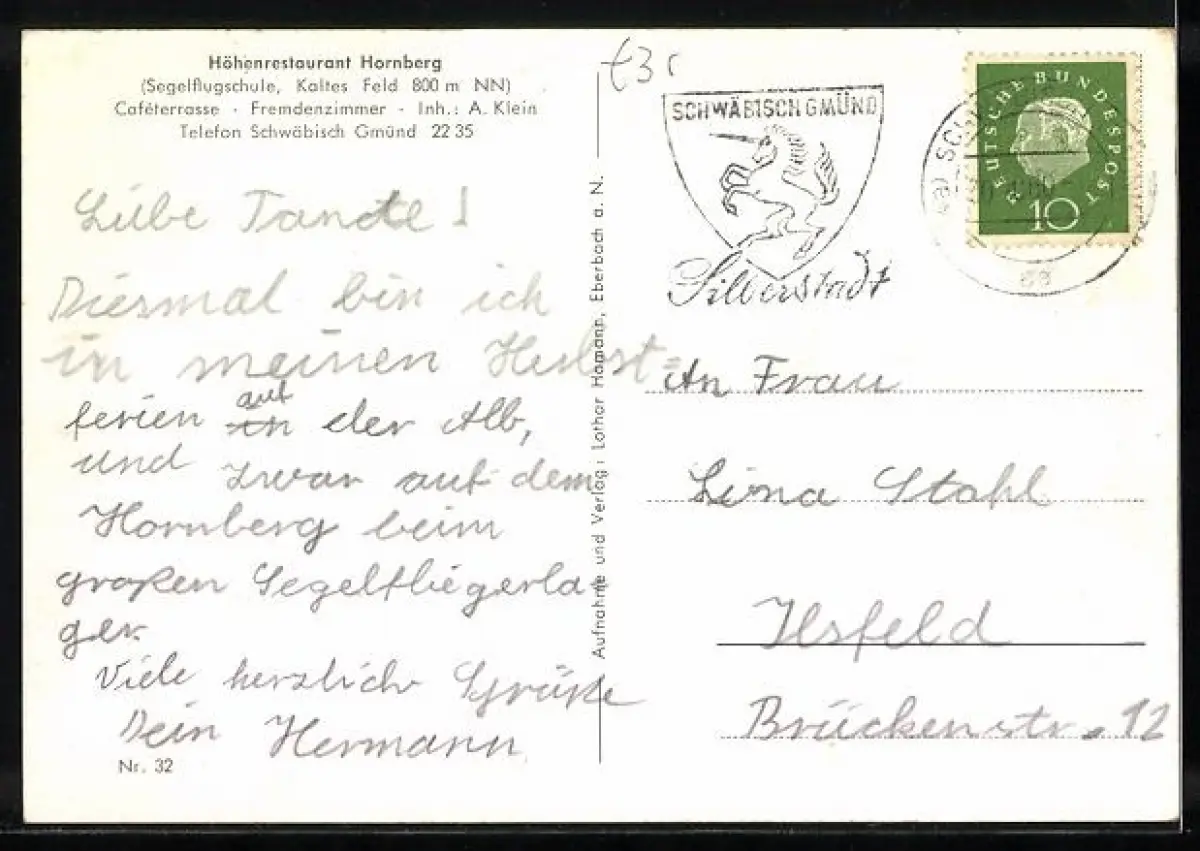 Höhenrestaurant Hornberg
(Segelflugschule, Kaltes Feld 800 m NN)
Caféterrasse - Fremdenzimmer - Inh.: A. Klein
Telefon Schwäbisch Gmünd 22 35
Liebe Tande!
Diesmal bin ich
in meinen Herbst=
ferien in auf der Alb,
und zwar auf dem
Hornberg beim
großen Segelfliegerla-
ger.
Viele herzlich Grüße
Dein Hermann
Nr. 32
Aufnahme und Verlag: Lothar Hamann, Eberbach a. N.
SCHWÄBISCH GMÜND
Silberstadt
DEUTSCHE BUNDESPOST
10
An Frau
Lina Stahl
Ilsfeld
Brückenstr. 12